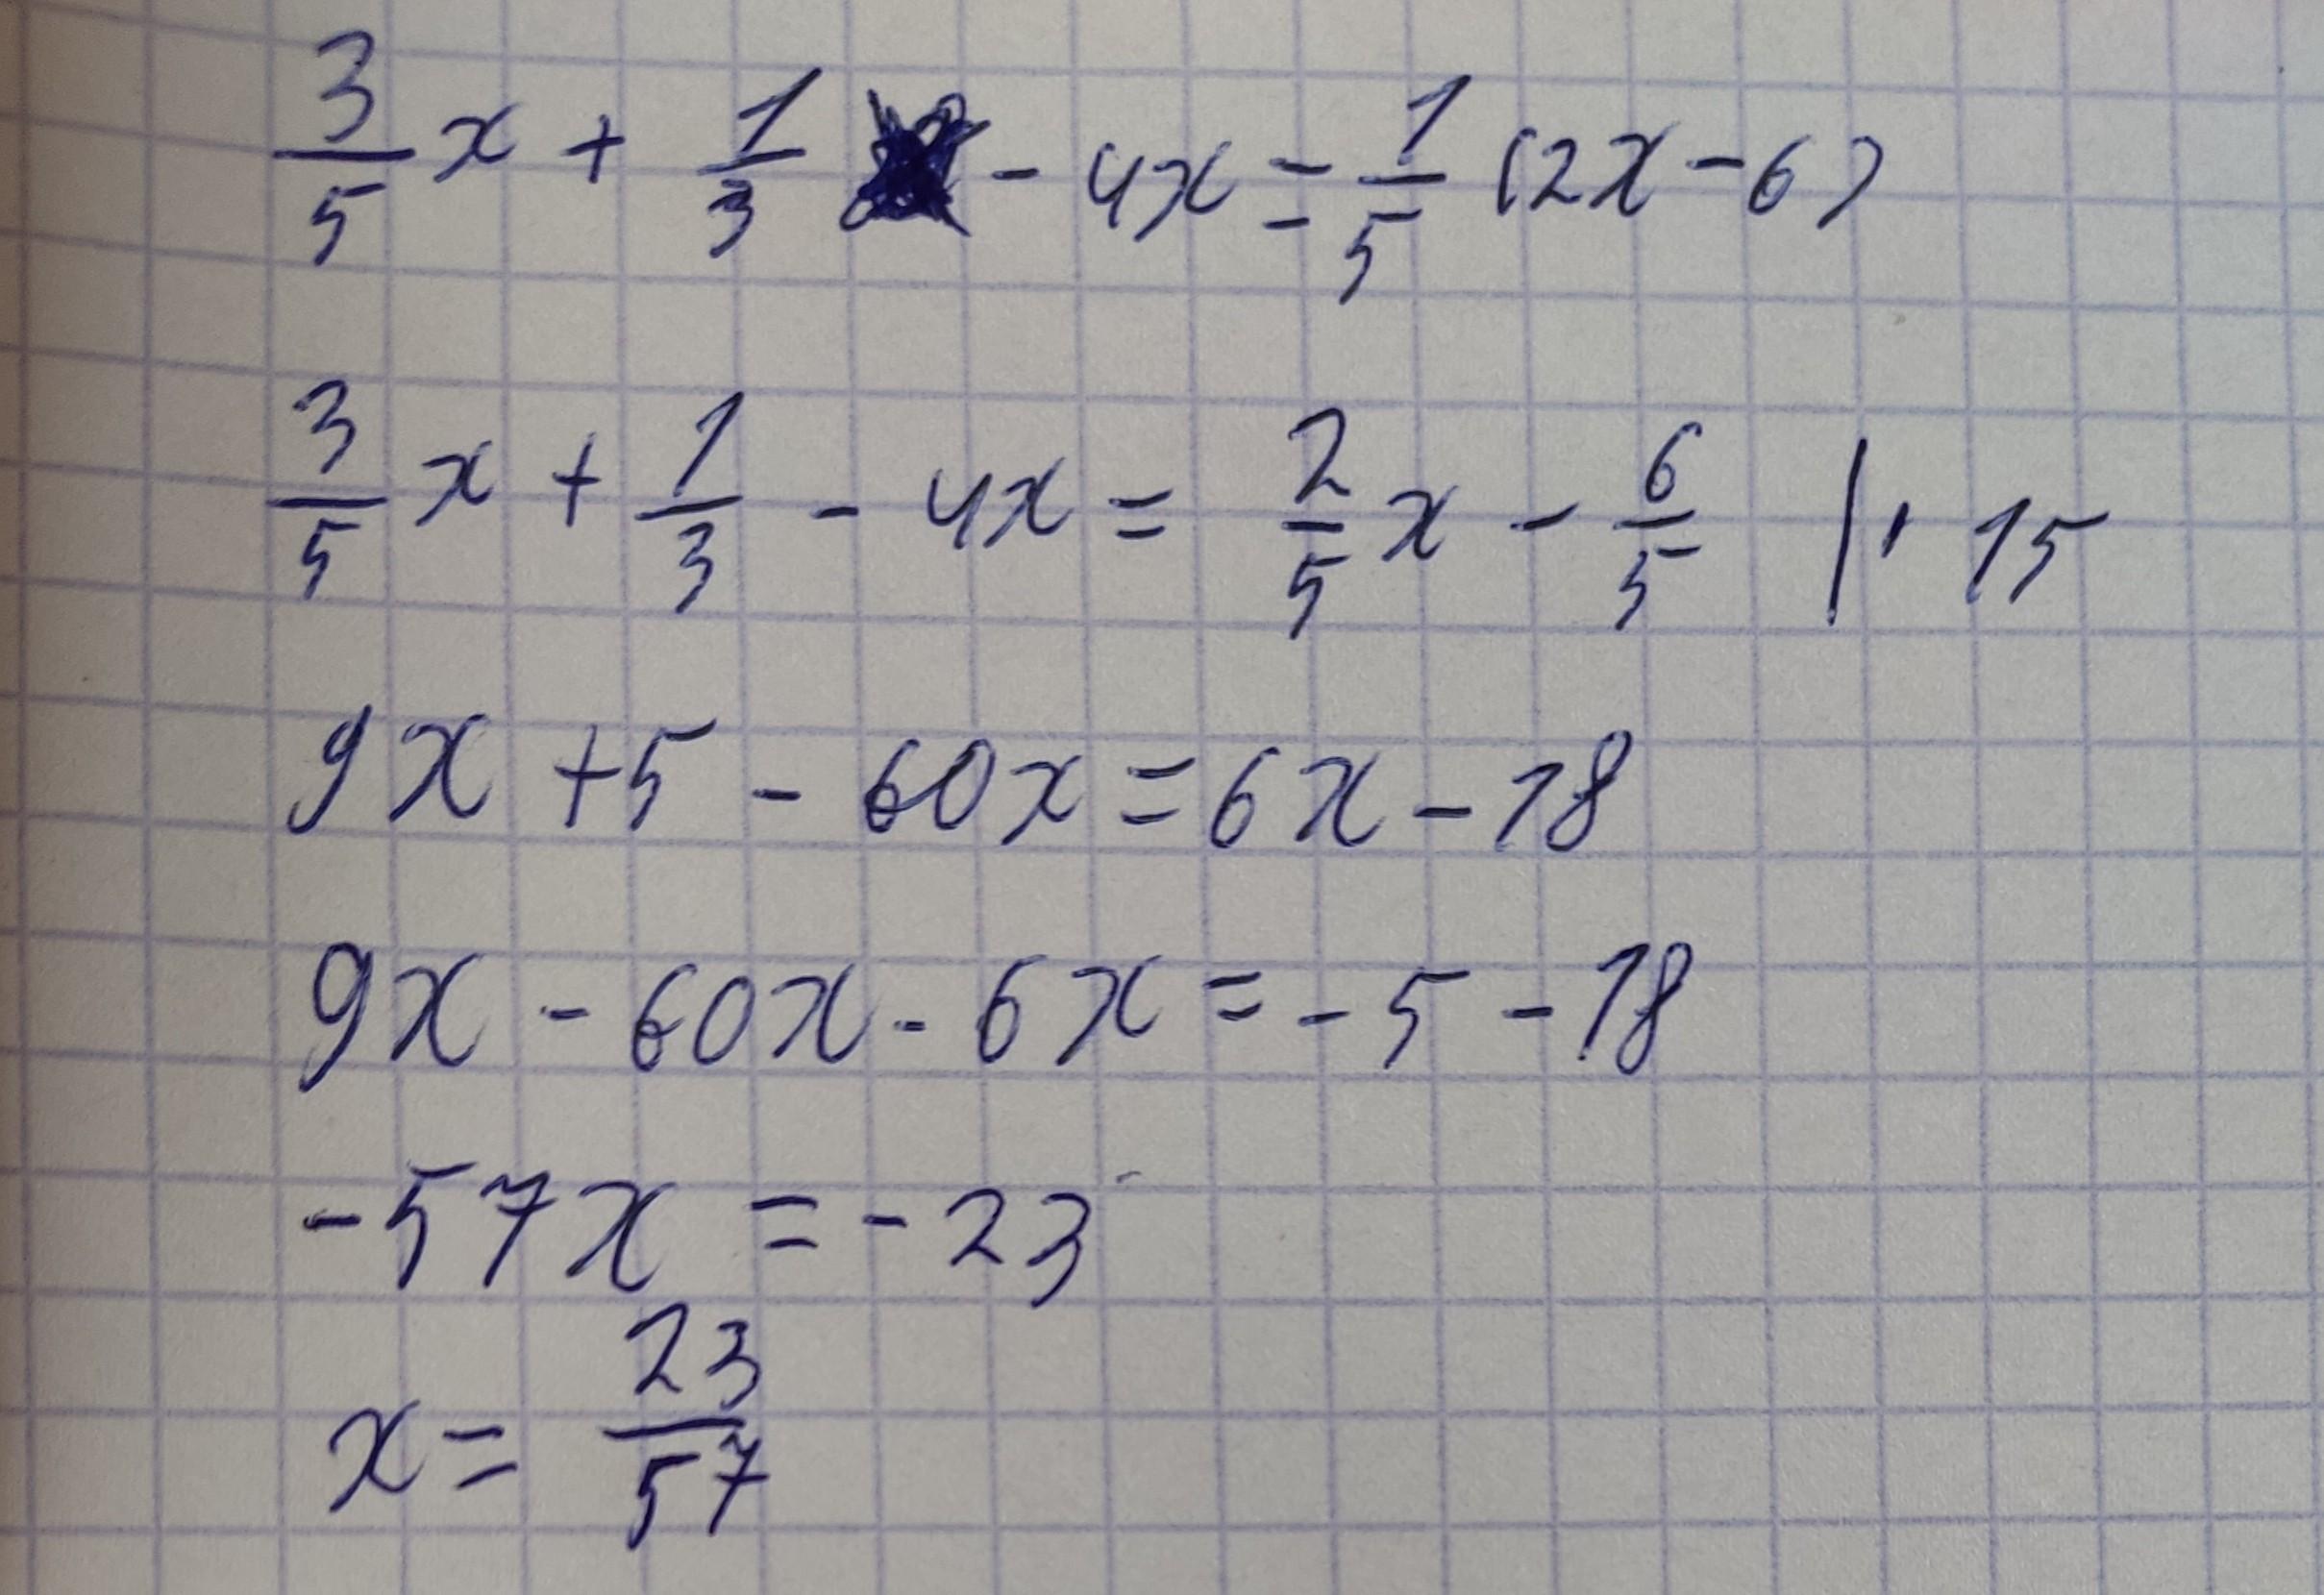 3/5 x + 1/3 - 4x = 1/5 (2x - 6)
3/5 x + 1/3 - 4x = 2/5 x - 6/5 | · 15
9x + 5 - 60x = 6x - 18
9x - 60x - 6x = - 5 - 18
- 57x = - 23
x = 23/57